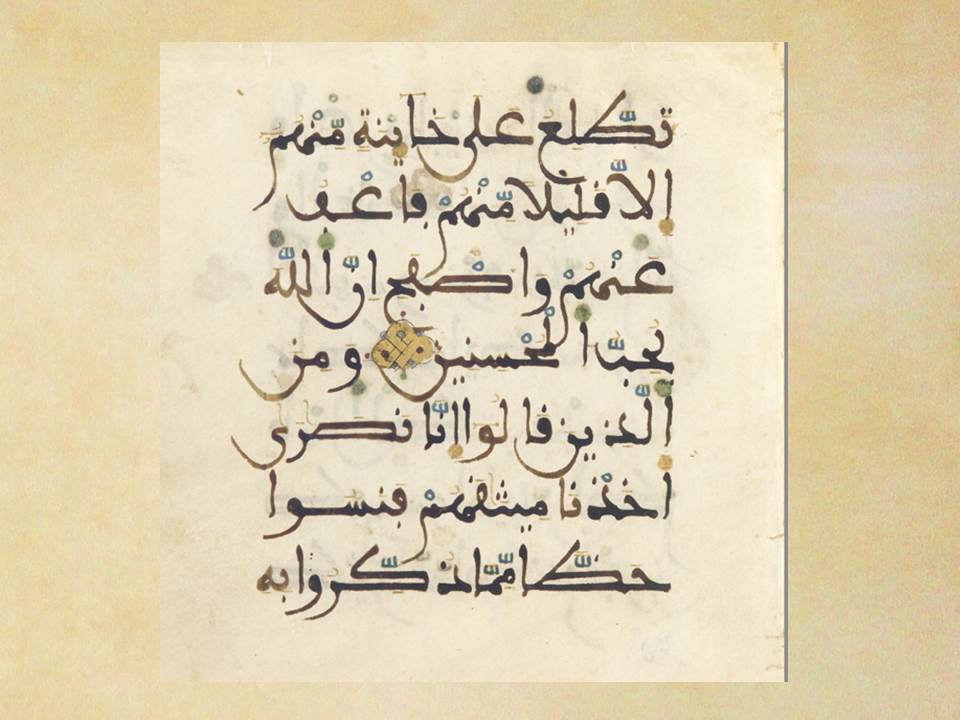 تطلع على خاينة منهم
الا قليلا منهم فاعف
عنهم واصفح ان الله
يحب المحسنين ومن
الذين قالوا انا نصرى
اخذنا ميثقهم فنسوا
حظا مما ذكروا به